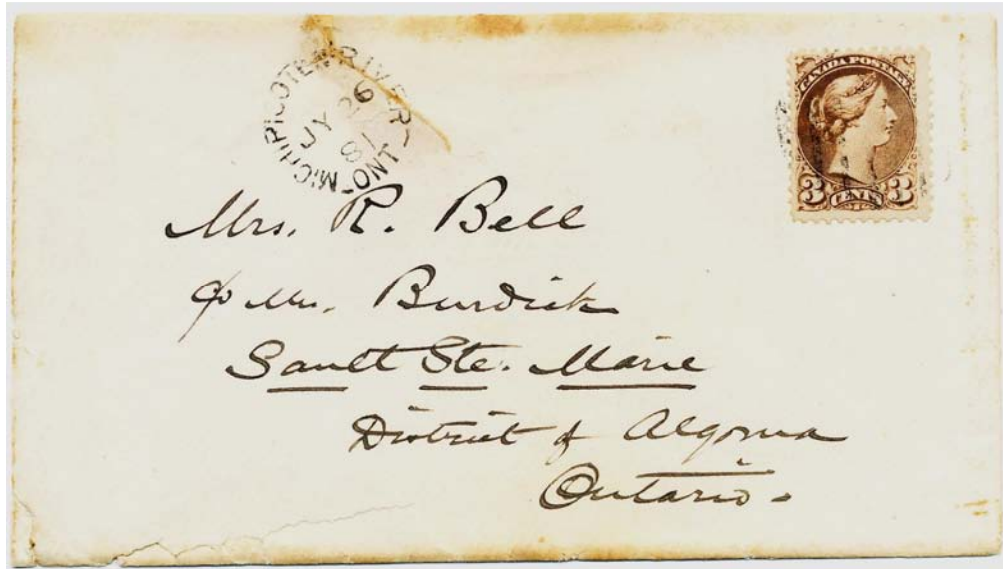 MICHIPICOTEN RIVER - ONT -
JY 26
81
CANADA POSTAGE
3 CENTS 3
Mrs. R. Bell
c/o Mrs. Burdick
Sault Ste. Marie
District of Algoma
Ontario.